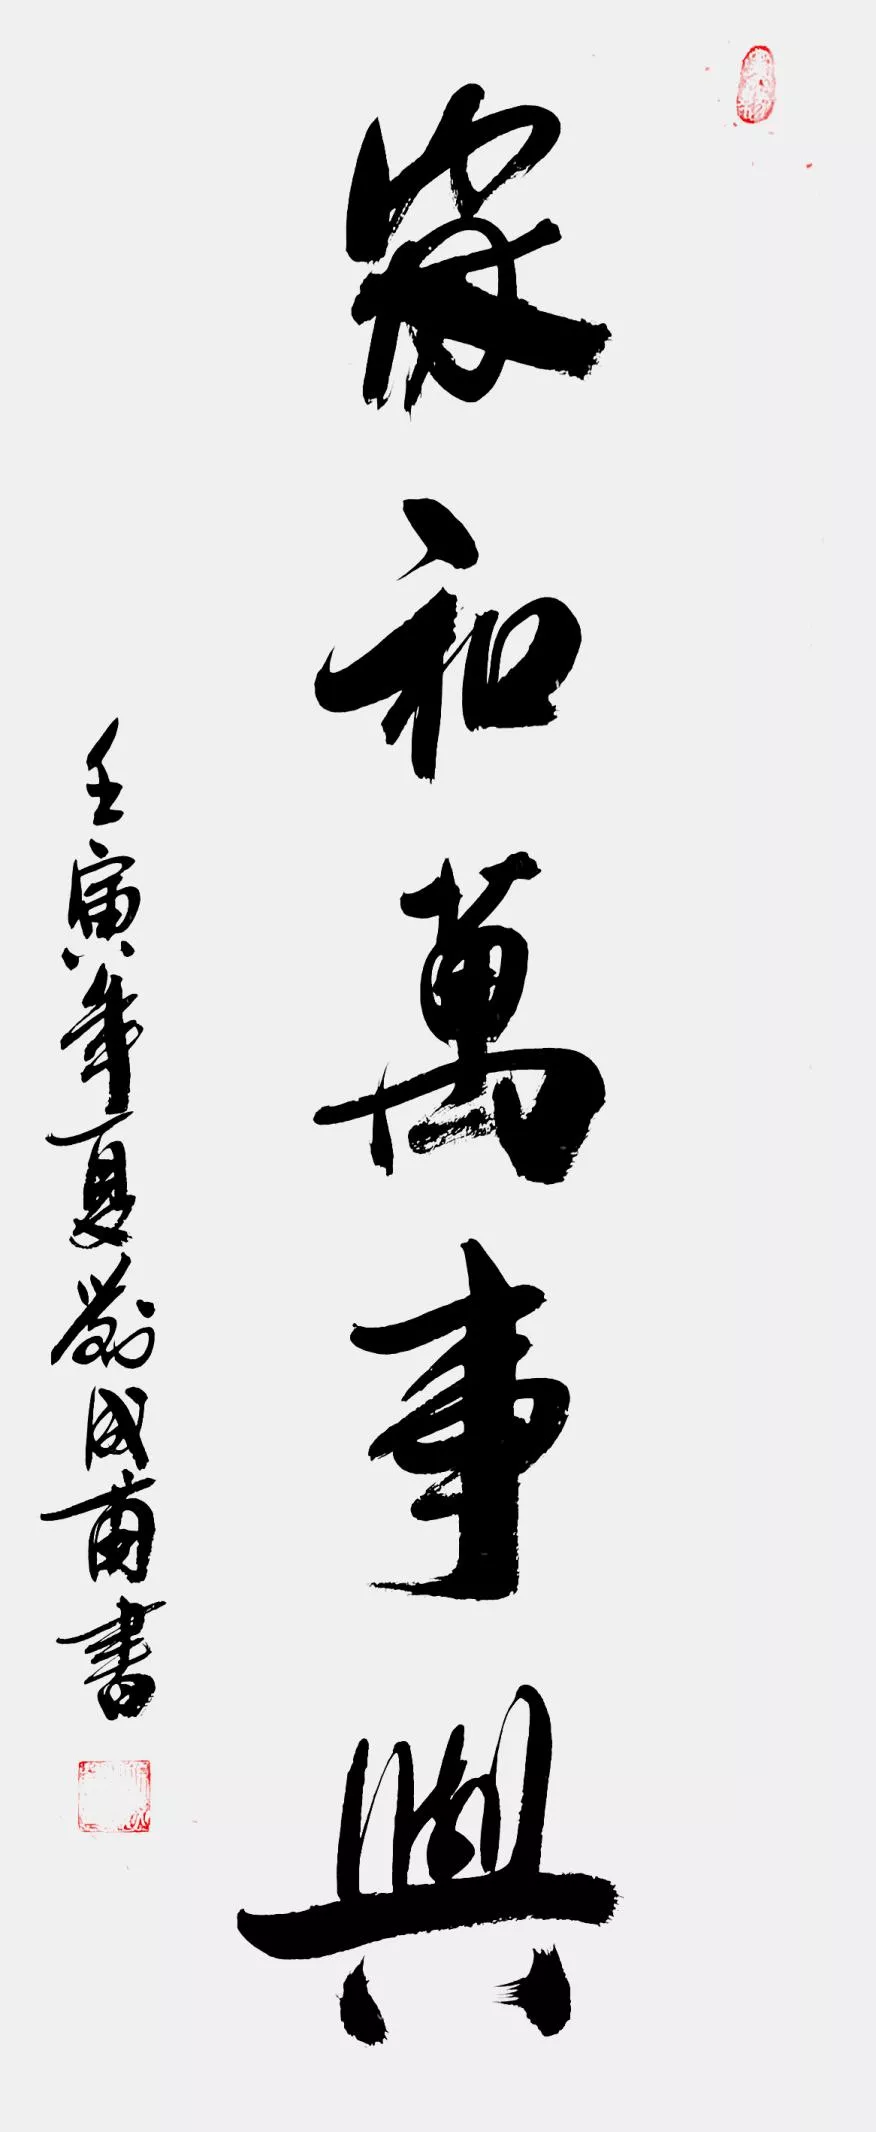 家和萬事興
壬寅年夏劉成甫書